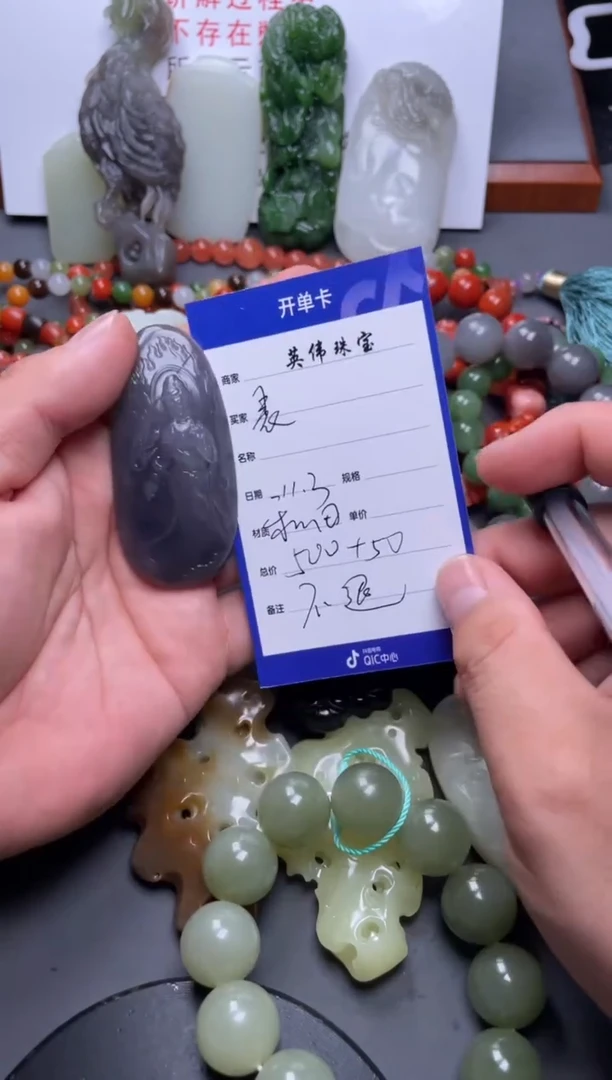 不存在
开单卡
商家 英伟珠宝
买家
名称
日期 11.3 规格
材质 和田 单价
总价 500+50
备注 不退
抖音电商
QIC中心